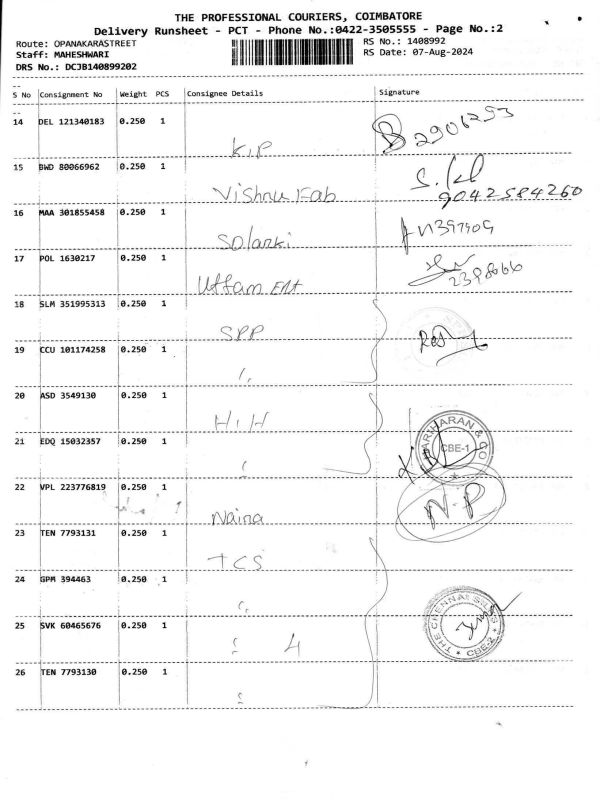 THE PROFESSIONAL COURIERS, COIMBATORE
Delivery Runsheet - PCT - Phone No.:0422-3505555 - Page No.:2
Route: OPANAKARASTREET
RS No.: 1408992
Staff: MAHESHWARI
RS Date: 07-Aug-2024
DRS No.: DCJB140899202
S No Consignment No Weight PCS Consignee Details Signature
14 DEL 121340183 0.250 1 K.P 2906253
15 BWD 80066962 0.250 1 Vishnu Fab
9042584260
16 MAA 301855458 0.250 1 Solanki
17 POL 1630217 0.250 1 Uttam Ent
2398666
18 SLM 351995313 0.250 1 SPP
19 CCU 101174258 0.250 1
20 ASD 3549130 0.250 1 H.H
HARIHARAN & CO
CBE-1
21 EDQ 15032357 0.250 1
22 VPL 223776819 0.250 1 Naina N.P
23 TEN 7793131 0.250 1 TCS
24 GPM 394463 0.250 1
25 SVK 60465676 0.250 1 4
THE CHENNAI SILKS
CBE-2
26 TEN 7793130 0.250 1